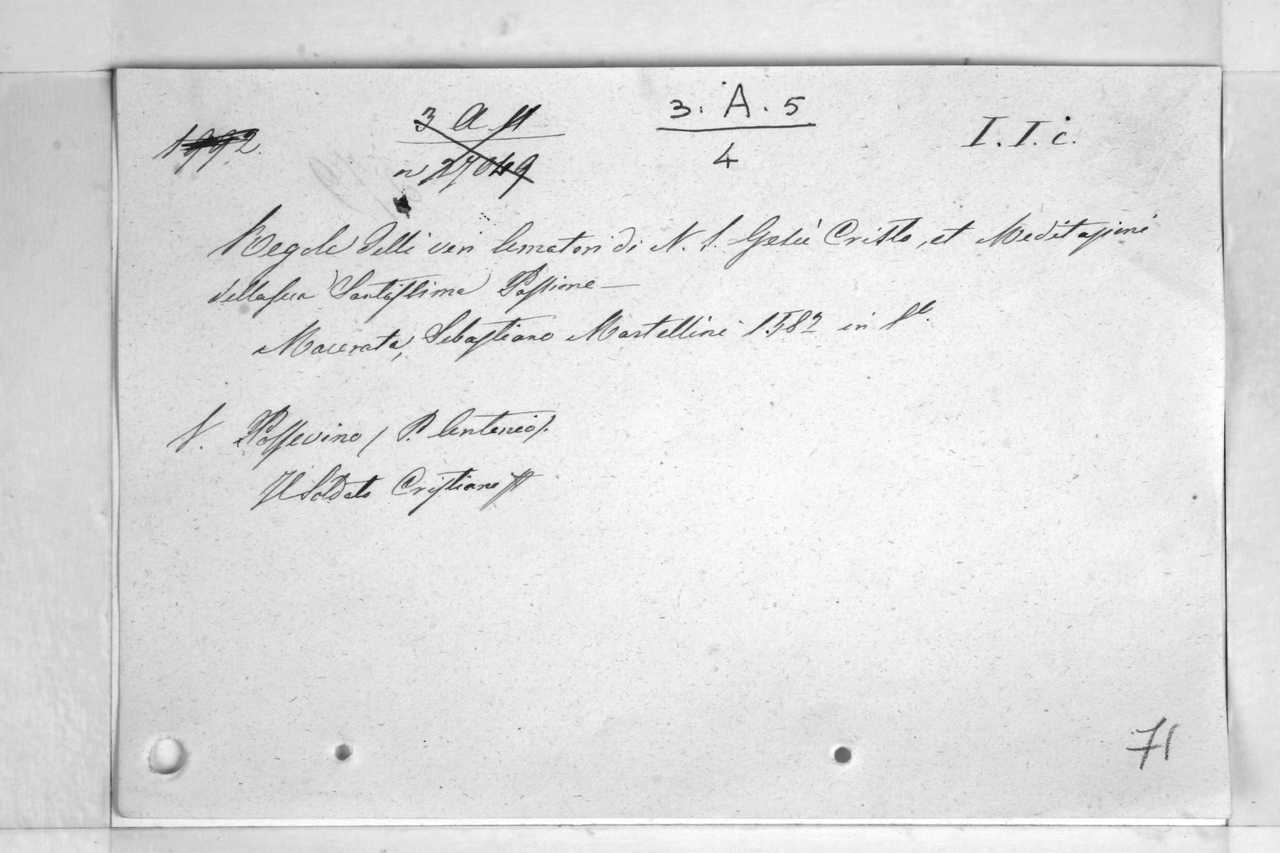 3 A 11
3. A. 5
I. I. c.
n 27049
4
Regole delli veri Amatori di N. S. Gesù Cristo, et Meditazioni
della sua Santissima Passione —
Macerata, Sebastiano Martellini 1582 in 8º.
V. Possevino (P. Antonio).
Il Soldato Cristiano
71